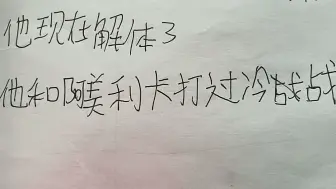 他现在解体3
他和阿美利卡打过冷战战